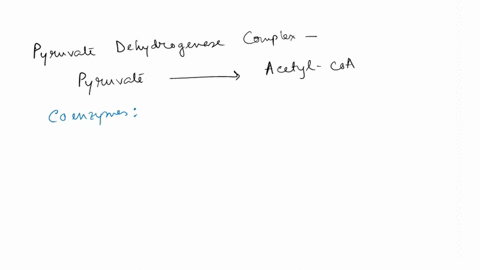 Pyruvate Dehydrogenase Complex —
Pyruvate ⟶ Acetyl-CoA
Coenzymes: